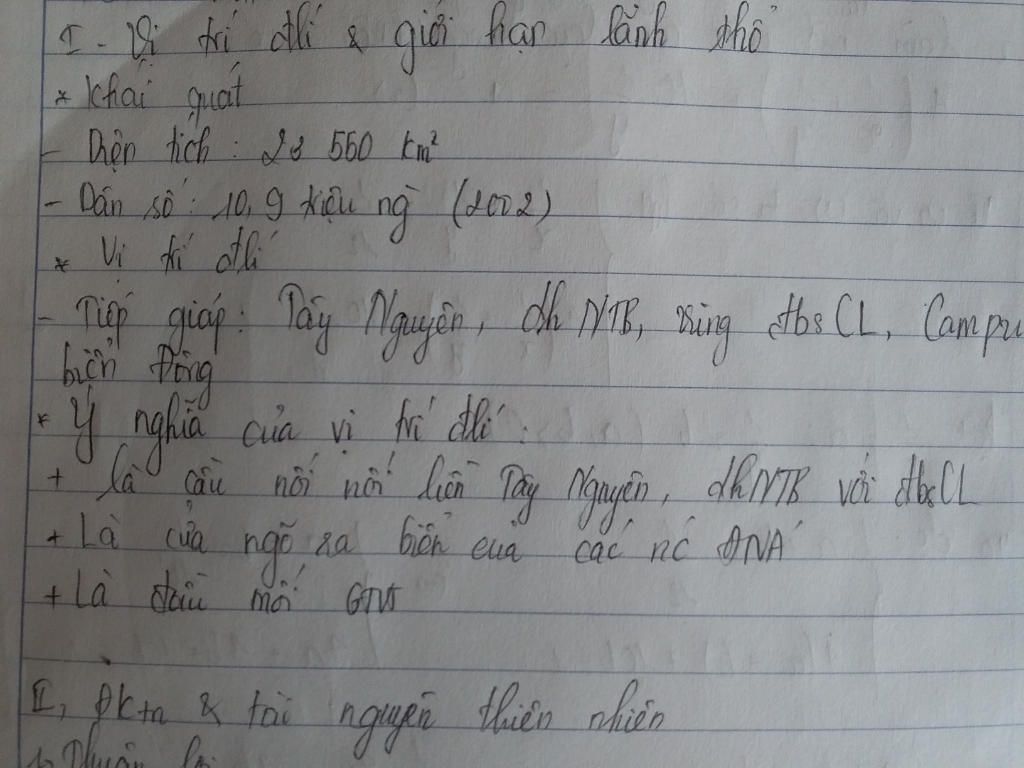 I - Vị trí đlí & giới hạn lãnh thổ
* Khái quát
- Diện tích : 23 550 km²
- Dân số : 10,9 triệu ng (2002)
* Vị trí đlí
- Tiếp giáp : Tây Nguyên, dh NTB, vùng đbsCL, Campu
biển Đông
* Ý nghĩa của vị trí đlí :
+ là cầu nối nối liền Tây Nguyên, dhNTB với đbsCL
+ Là cửa ngõ ra biển của các nc ĐNÁ
+ Là đầu mối GTVT
II, ĐKtn & tài nguyên thiên nhiên
Thuận lợi